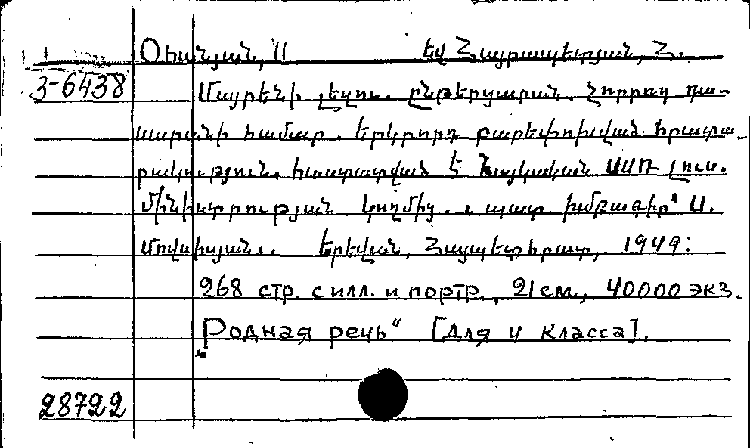 Օհանյան, Ա. եվ Հայրապետյան, Հ.
3-6438
Մայրենի լեզու. ընթերցարան. չորրորդ դա-
սարանի համար. երկրորդ բարեփոխված հրատա-
րակություն. հաստատված է Հայկական ՍՍՌ լուս.
մինիստրության կողմից. պատ խմբագիր՝ Ս.
Մովսիսյան. Երեվան, Հայպետհրատ, 1949:
268 стр. с илл. и портр., 21 см., 40000 экз.
„Родная речь“ [для 4 класса].
28722